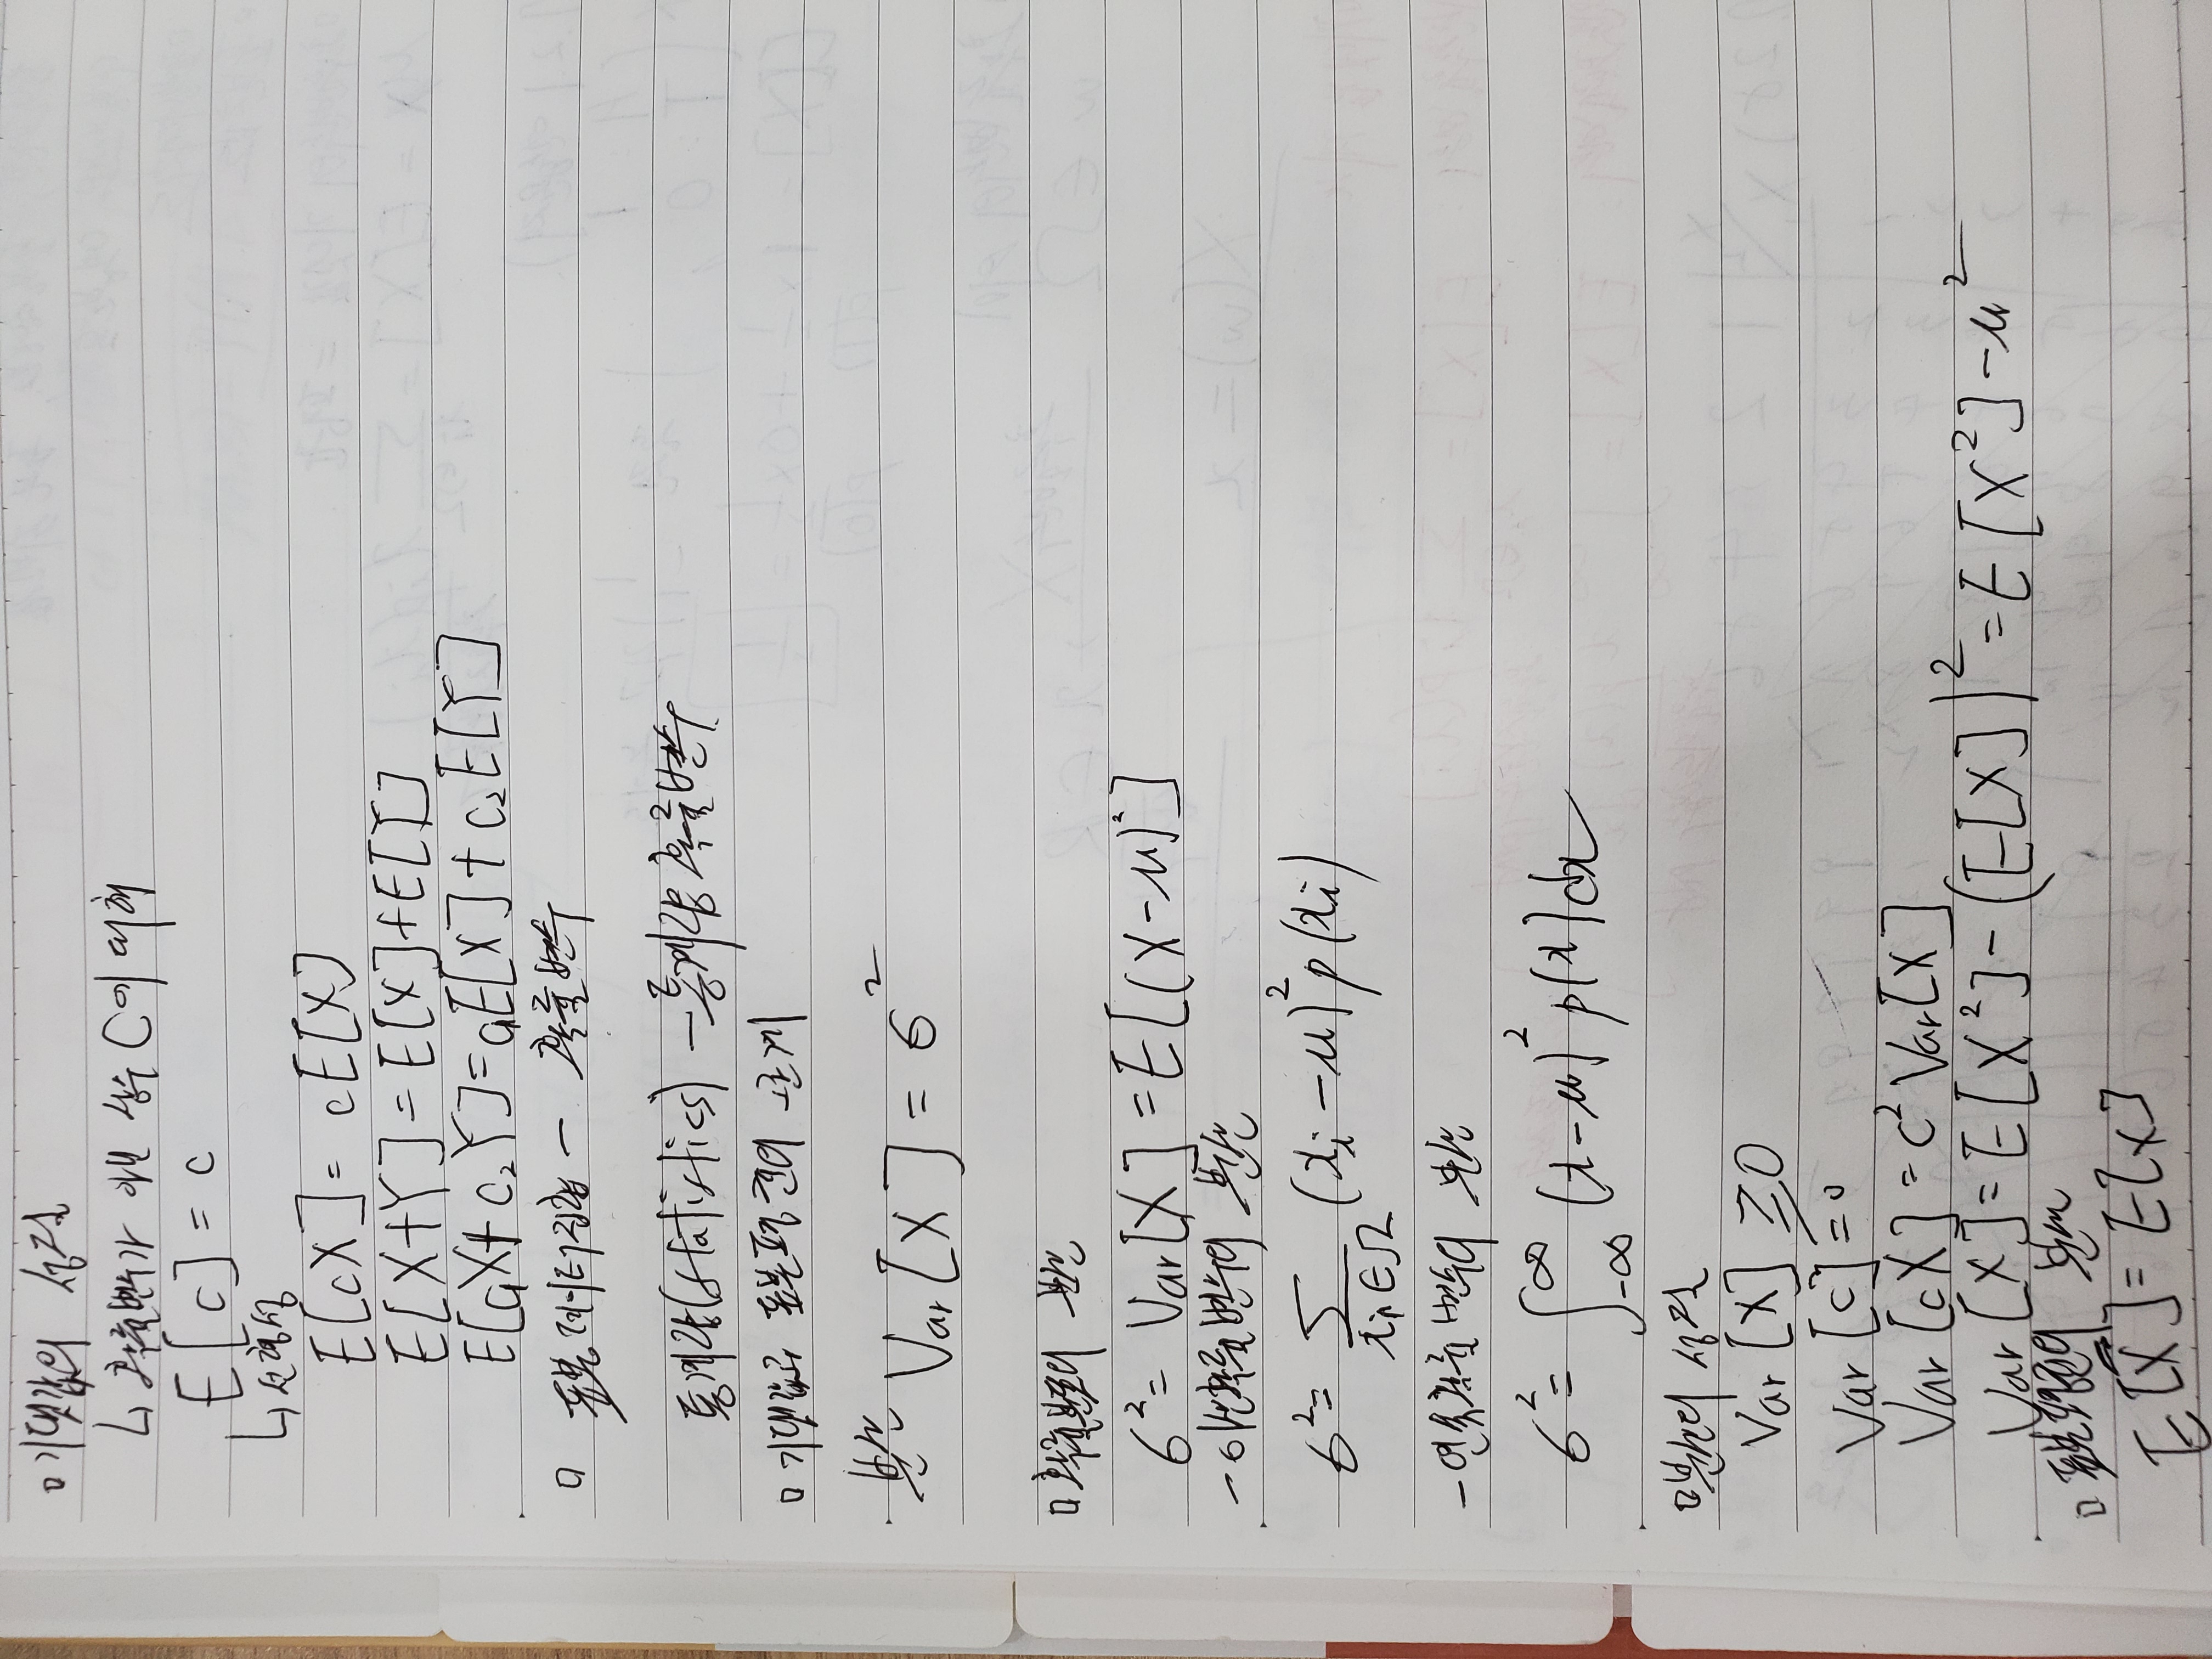 □ 기댓값의 성질
↳ 확률변수가 아닌 상수 C에 대해
E[c] = c
↳ 선형성
E[cX] = cE[X]
E[X+Y] = E[X]+E[Y]
E[c₁X+c₂Y] = c₁E[X]+c₂E[Y]
□ 표본데이터집합 - 확률변수
통계량(statistics) - 통계량 확률변수
□ 기댓값과 표본평균의 관계
분산 Var[X] = σ²
□ 확률분포의 분산
σ² = Var[X] = E[(X-μ)²]
- 이산확률변수의 분산
σ² = Σ (xᵢ-μ)²p(xᵢ)
xᵢ∈Ω
- 연속확률변수의 분산
σ² = ∫_{-∞}^{∞} (x-μ)²p(x)dx
□ 분산의 성질
Var[X] ≥ 0
Var[c] = 0
Var[cX] = c² Var[X]
Var[X] = E[X²]-(E[X])² = E[X²]-μ²
□ 표본평균의 분산
E[X̄] = E[X]